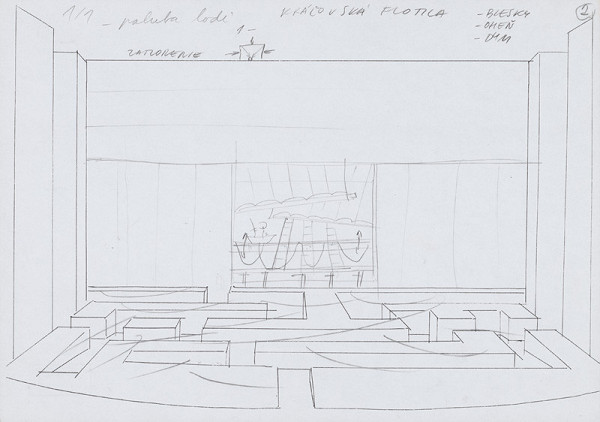 1/1 - paluba lodi
KRÁĽOVSKÁ FLOTILA
- BLESKY
- OHEŇ
- DYM
2
1-
ZATVORENIE